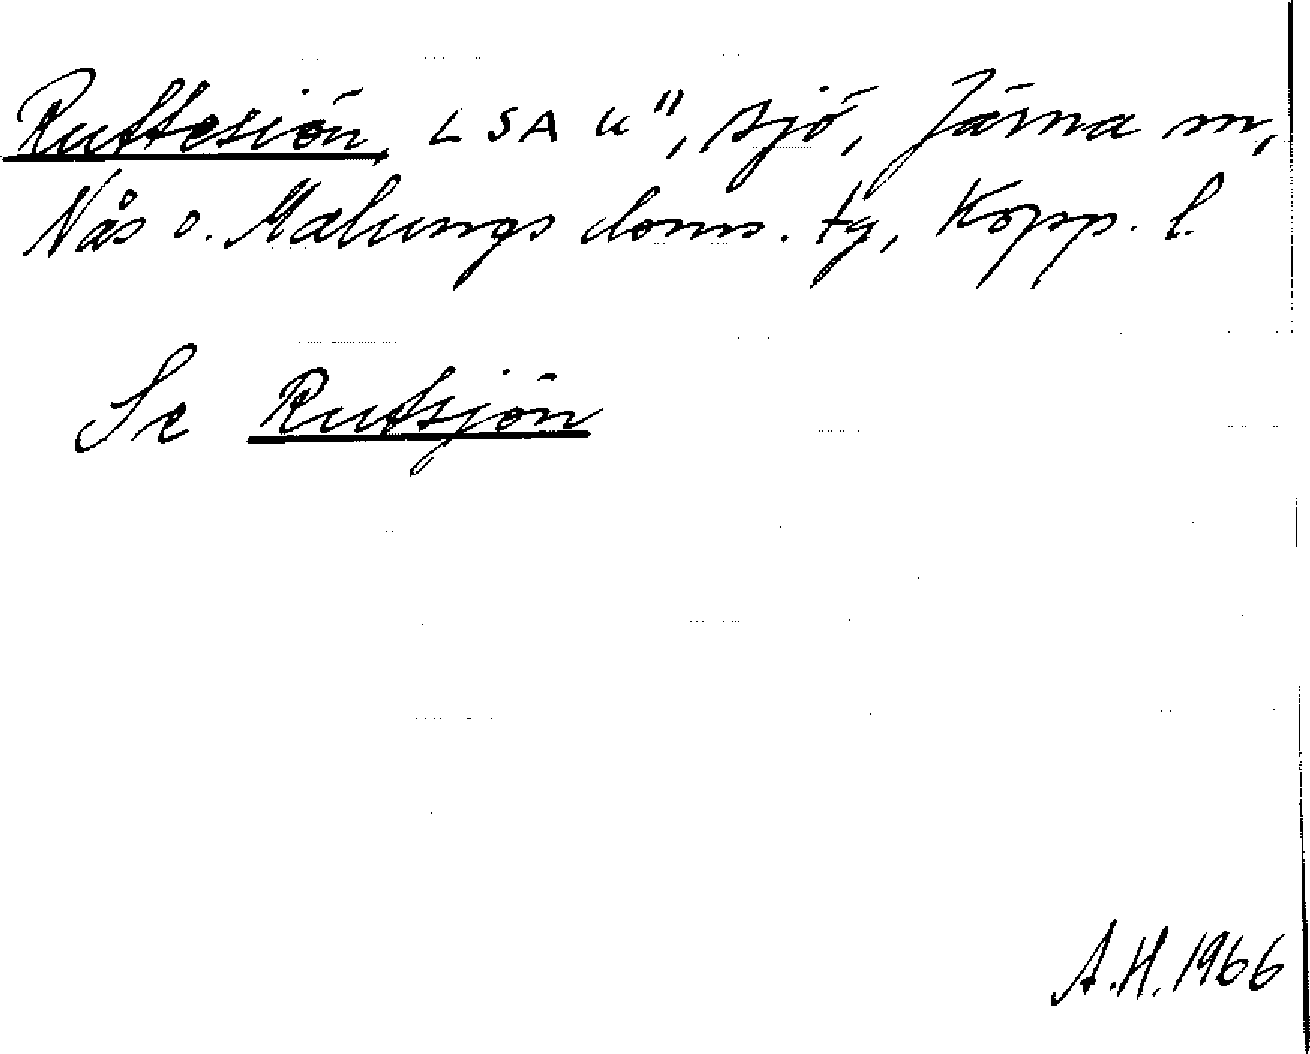 Ruttesiön, LSA u", sjö, Järna sn,
Nås o. Malungs doms. tg, Kopp. l.
Se Rutsjön
A.H. 1966